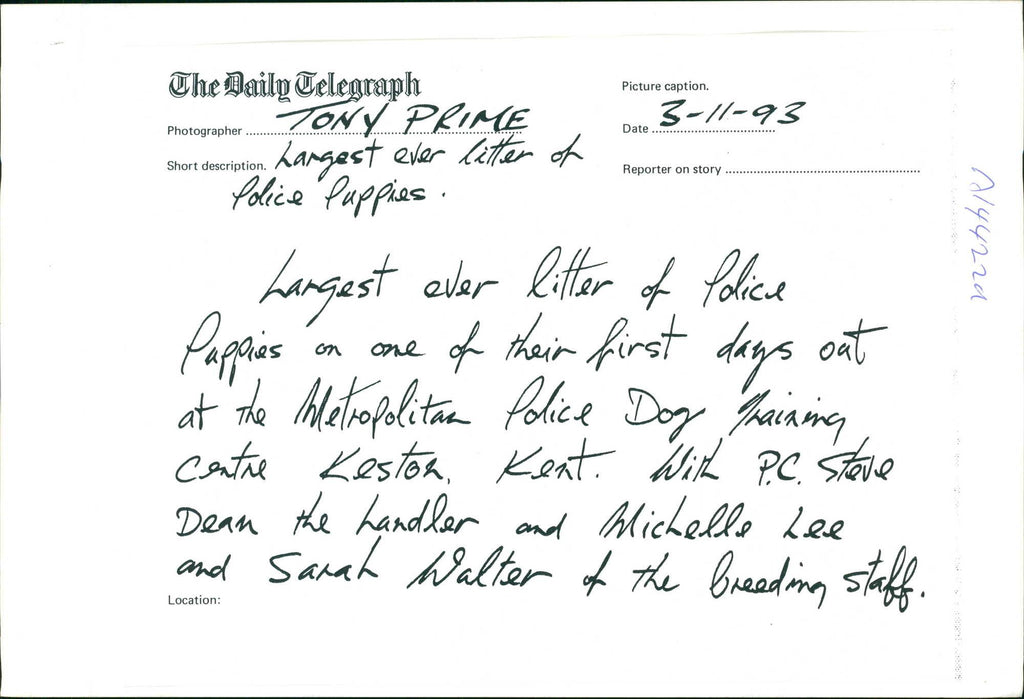 The Daily Telegraph
Picture caption.
Photographer TONY PRIME
Date 3-11-93
Short description. Largest ever litter of
Police Puppies.
Reporter on story
Largest ever litter of Police
Puppies on one of their first days out
at the Metropolitan Police Dog Training
Centre Keston, Kent. With P.C. Steve
Dean the handler and Michelle Lee
and Sarah Walter of the breeding staff.
Location: